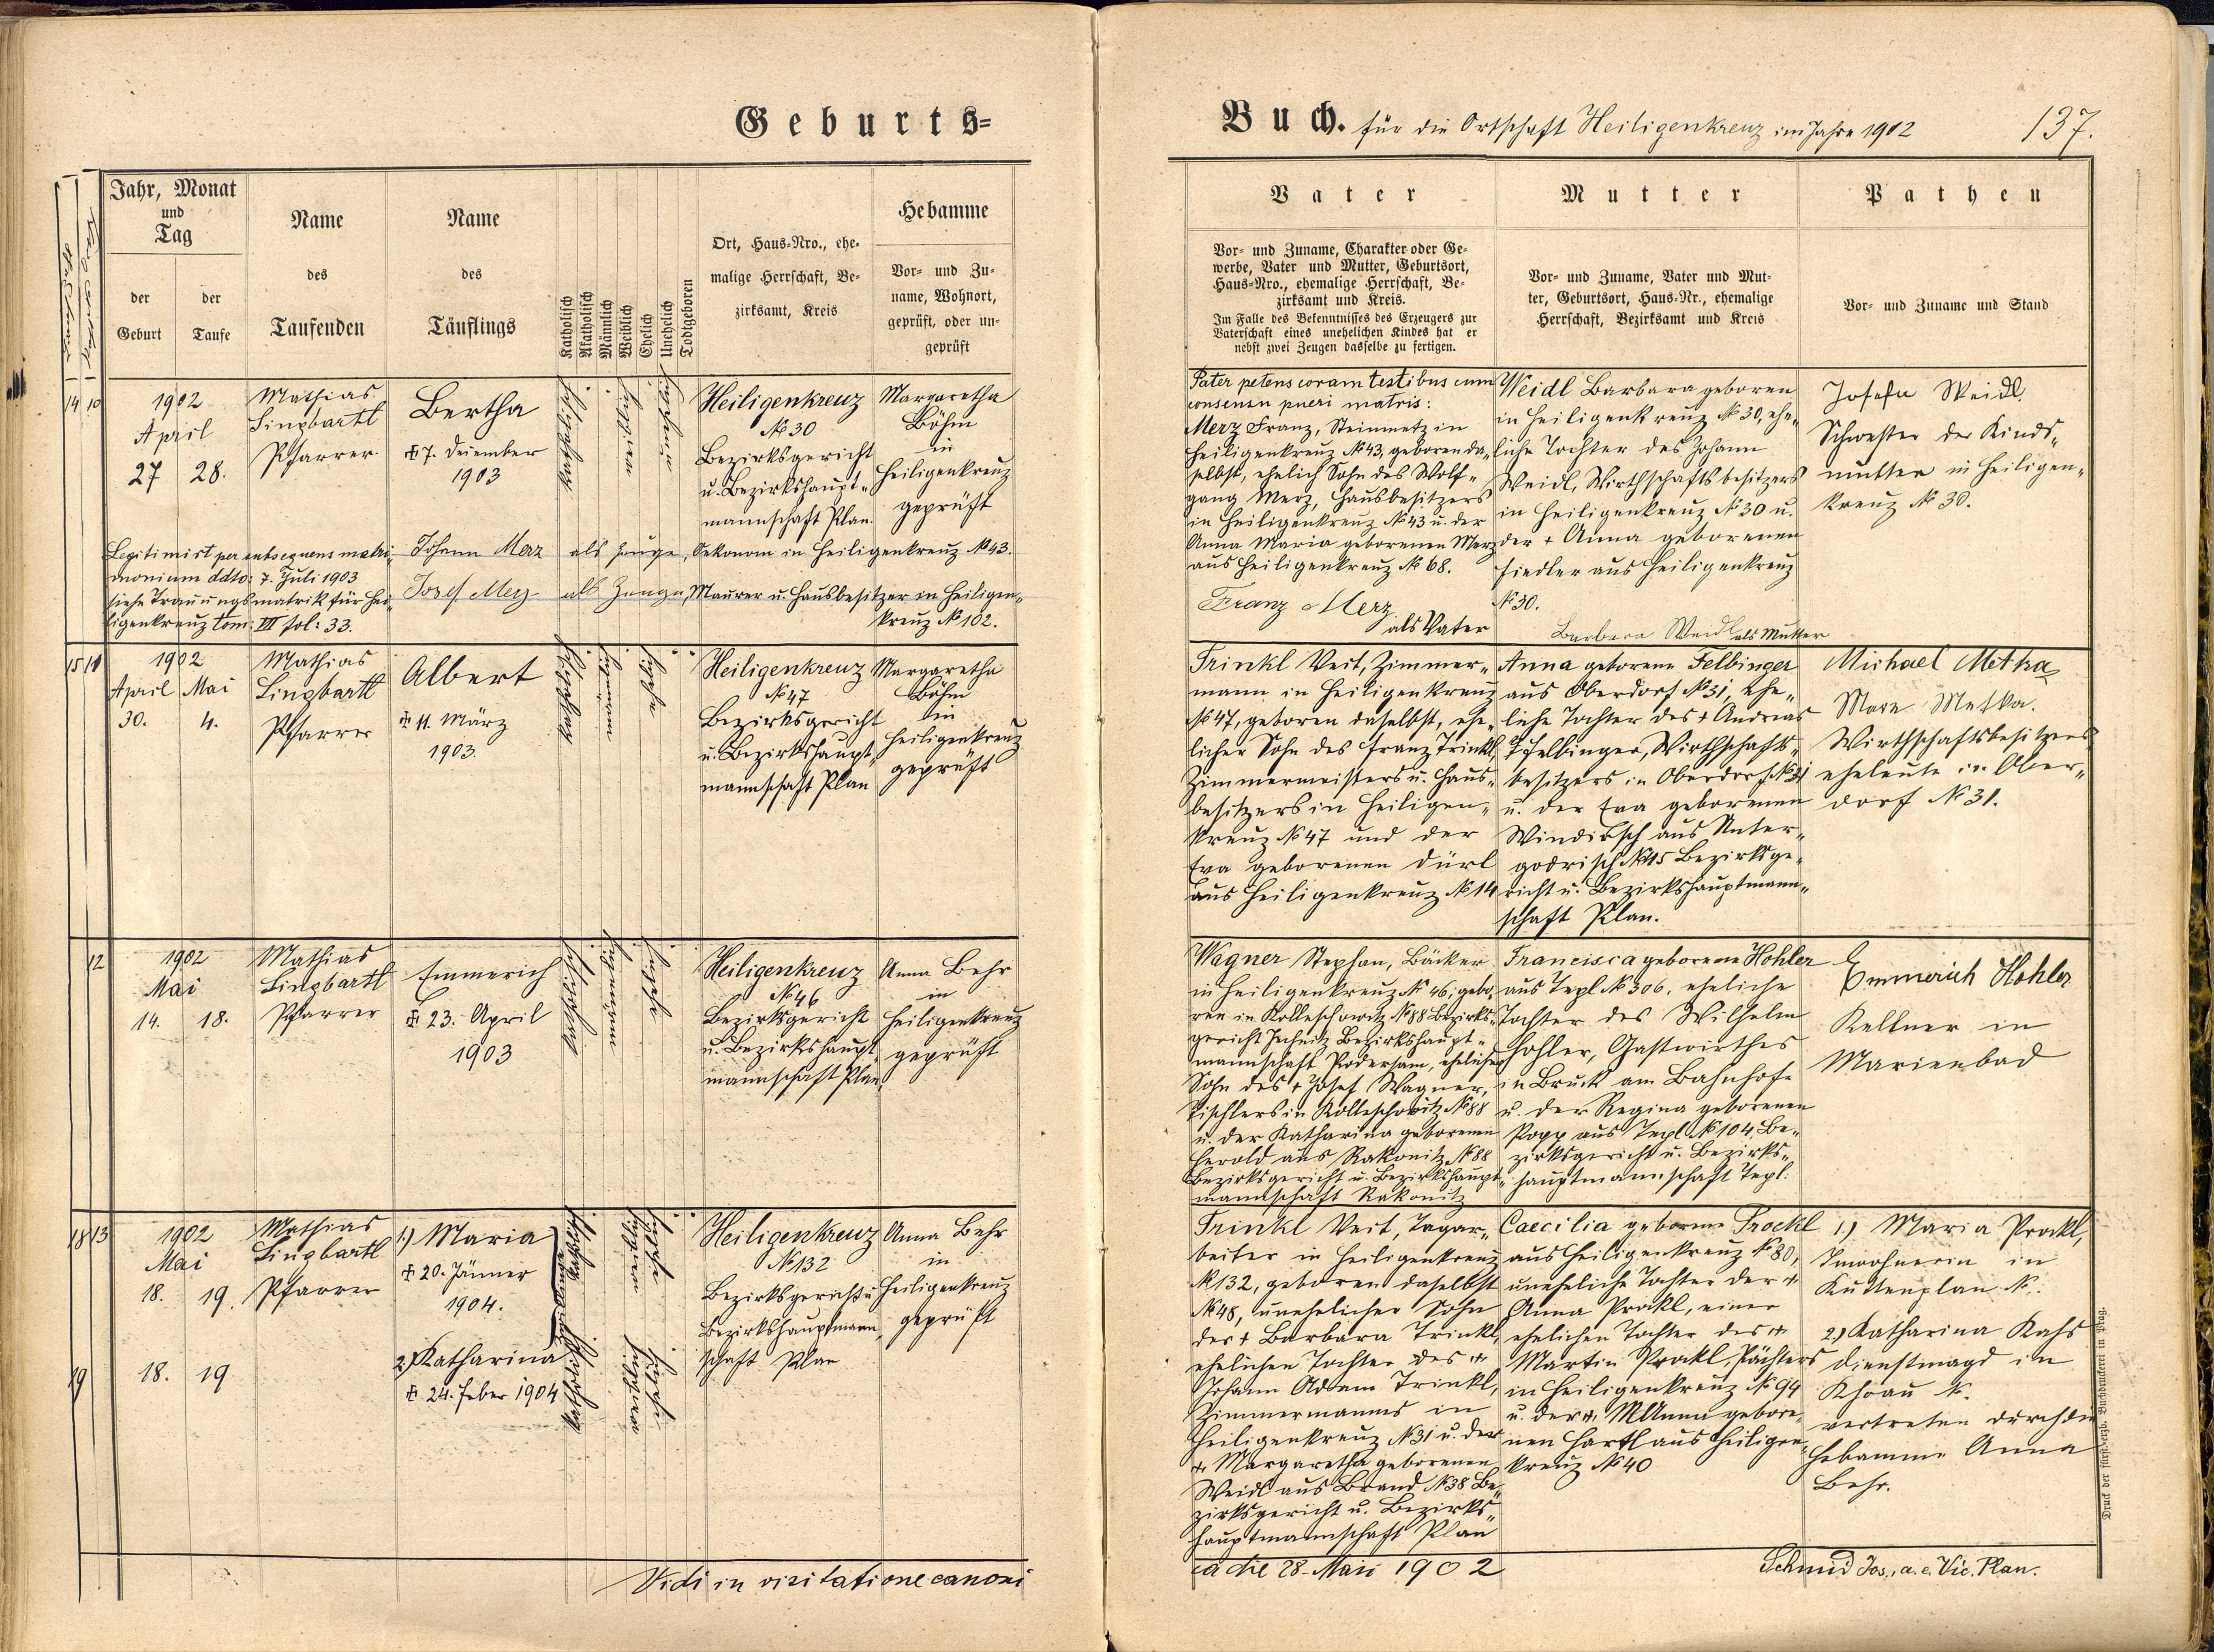 Geburts=
Buch. für die Ortschaft Heiligenkreuz im Jahre 1902
137.
Jahr, Monat
und
Tag
der
Geburt
der
Taufe
Name
des
Taufenden
Name
des
Täuflings
Katholisch
Akatholisch
Männlich
Weiblich
Ehelich
Unehelich
Todtgeboren
Ort, Haus-Nro., ehe-
malige Herrschaft, Be-
zirksamt, Kreis
Hebamme
Vor- und Zu-
name, Wohnort,
geprüft, oder un-
geprüft
Vater
Vor- und Zuname, Charakter oder Ge-
werbe, Vater und Mutter, Geburtsort,
Haus-Nro., ehemalige Herrschaft, Be-
zirksamt und Kreis.
Im Falle des Bekenntnisses des Erzeugers zur
Vaterschaft eines unehelichen Kindes hat er
nebst zwei Zeugen dasselbe zu fertigen.
Mutter
Vor- und Zuname, Vater und Mut-
ter, Geburtsort, Haus-Nr., ehemalige
Herrschaft, Bezirksamt und Kreis
Pathen
Vor- und Zuname und Stand
14 10
1902
April
27 28.
Mathias
Lingbartl
Pfarrer
Bertha
✠ 7. Dezember
1903
Heiligenkreuz
№ 30
Bezirksgericht
u. Bezirkshaupt-
mannschaft Plan.
Margaretha
Böhm
in
Heiligenkreuz
geprüft
Legitimirt per subsequens matri-
monium ddto: 7. Juli 1903
siehe Trauungsmatrik für Hei-
ligenkreuz tom: III fol: 33.
Johann Merz als Zeuge, Oekonom in Heiligenkreuz № 43.
Josef Merz als Zeuge, Maurer u. Hausbesitzer in Heiligen-
kreuz № 102.
Pater petens coram testibus cum
consensu pueri matris:
Merz Franz, Steinmetz in
Heiligenkreuz № 43, geboren da-
selbst, ehelich Sohn des Wolf-
gang Merz, Hausbesitzers
in Heiligenkreuz № 43 u. der
Anna Maria geborenen Merz
aus Heiligenkreuz № 68.
Franz Merz
als Vater
Weidl Barbara geboren
in Heiligenkreuz № 30, ehe-
liche Tochter des Johann
Weidl, Wirthschaftsbesitzers
in Heiligenkreuz № 30 u.
der + Anna geborenen
Fiedler aus Heiligenkreuz
№ 30.
Barbara Weidl als Mutter
Josefa Weidl
Schwester der Kinds-
mutter in Heiligen-
kreuz № 30.
15 11
1902
April Mai
30. 4.
Mathias
Lingbartl
Pfarrer
Albert
✠ 11. März
1903.
Heiligenkreuz
№ 47
Bezirksgericht
u. Bezirkshaupt-
mannschaft Plan
Margaretha
Böhm
in
Heiligenkreuz
geprüft
Trinkl Veit, Zimmer-
mann in Heiligenkreuz
№ 47, geboren daselbst, ehe-
licher Sohn des Franz Trinkl,
Zimmermeisters u. Haus-
besitzers in Heiligen-
kreuz № 47 und der
Eva geborenen Dürl
aus Heiligenkreuz № 14
Anna geborene Felbinger
aus Oberdorf № 31, ehe-
liche Tochter des + Andreas
Felbinger, Wirthschafts-
besitzers in Oberdorf № 31
u. der Eva geborenen
Windirsch aus Unter-
godrisch № 15 Bezirksge-
richt u. Bezirkshauptmann-
schaft Plan.
Michael Metka
Metka.
Wirthschaftsbesitzers
eheleute in Ober-
dorf № 31.
12
1902
Mai
14. 18.
Mathias
Lingbartl
Pfarrer
Emmerich
✠ 23. April
1903
Heiligenkreuz
№ 46
Bezirksgericht
u. Bezirkshaupt-
mannschaft Plan
Anna Behr
in
Heiligenkreuz
geprüft
Wagner Stephan, Bäcker
in Heiligenkreuz № 46, gebo-
ren in Kolleschowitz № 88 Bezirks-
gericht Jechnitz Bezirkshaupt-
mannschaft Podersam, ehelicher
Sohn des + Josef Wagner,
Tischlers in Kolleschowitz № 88
u. der Katharina geborenen
Herold aus Rakonitz № 88
Bezirksgericht u. Bezirkshaupt-
mannschaft Rakonitz
Francisca geborene Hohler
aus Tepl № 306, eheliche
Tochter des Wilhelm
Hohler, Gastwirthes
in Bruck am Bahnhofe
u. der Regina geborenen
Popp aus Tepl № 104, Be-
zirksgericht u. Bezirks-
hauptmannschaft Tepl.
Emmerich Hohler
Kellner in
Marienbad
18 13
1902
Mai
18. 19.
Mathias
Lingbartl
Pfarrer
1.) Maria
✠ 20. Jänner
1904.
19
18. 19
2.) Katharina
✠ 24. Feber 1904
Heiligenkreuz
№ 132
Bezirksgericht u.
Bezirkshauptmann-
schaft Plan
Anna Behr
in
Heiligenkreuz
geprüft
Trinkl Veit, Tagar-
beiter in Heiligenkreuz
№ 132, geboren daselbst
№ 48, unehelicher Sohn
der + Barbara Trinkl,
ehelichen Tochter des +
Johann Adam Trinkl,
Zimmermanns in
Heiligenkreuz № 31 u. der
+ Margaretha geborenen
Weidl aus Brand № 38 Be-
zirksgericht u. Bezirks-
hauptmannschaft Plan
Caecilia geborene Prockl
aus Heiligenkreuz № 80,
uneheliche Tochter der +
Anna Prockl, einer
ehelichen Tochter des +
Martin Prockl, Pächters
in Heiligenkreuz № 94
u. der + M Anna gebore-
nen Hartl aus Heiligen-
kreuz № 40
1.) Maria Prockl,
Inwohnerin in
Kuttenplan №.
2.) Katharina Kahs
Dienstmagd in
Khoau №.
vertreten durch die
Hebamme Anna
Behr.
Vidi in visitatione canoni
ca die 28. Maii 1902
Schmid Jos., a. e. Vic. Plan.
Druck der fürsterzb. Buchdruckerei in Prag.